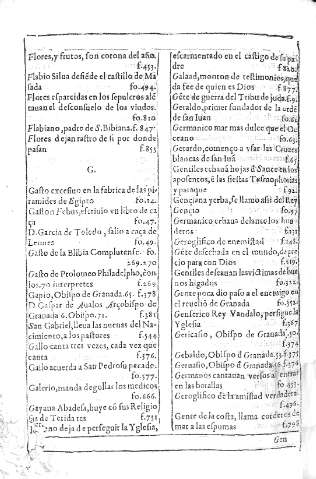 Flores, y frutos, son corona del año.
f.453.
Flabio Silua defiẽde el castillo de Masada
fo.494.
Flores esparzidas en los sepulcros alcançan
el desconsuelo de los viudos.
fo.810
Flabiano, padre de S. Bibiana. f.847
Flores dejan rastro de si por donde
pasan f.855
G.
Gasto excesiuo en la fabrica de las piramides
de Egipto fo.12.
Gaston Febus, escriuio en libro de caça
fo.47.
D. Garcia de Toledo, salio a caça de
Leones fo.49.
Gasto de la Biblia Complutense. fo.
269.270
Gasto de Ptolomeo Philadelpho, con
los 70 interpretes f.269
Gapio, Obispo de Granada.65. f.378
D. Gaspar de Aualos, Arçobispo de
Granada 6. Obispo.71. f.381
San Gabriel, lleua las nueuas del Nacimiento,
a los pastores f.544
Gallo canta tres vezes, cada vez que
canta f.576.
Gallo acuerda a San Pedro su pecado.
fo.577.
Galerio, manda degullar los medicos
fo.666.
Gayana Abadesa, huye cõ sus Religiosas
de Teridates f.755
no deja de perseguir la Yglesia,
escarmentado en el castigo de su padre
f.820.
Galaad, monton de testimonios, que
da fee de quien es Dios f.877.
Gẽte de guerra del Tribu de Juda. f.9.
Geraldo, primer fundador de la ordẽ
de san Juan fo.61.
Germanico mar mas dulce que el Oceano
fo.63.
Gerardo, començo a vsar las Cruzes
blancas de san Juã f.65.
Gentiles echauã hojas de Sauce en los
aposentos, ẽ las fiestas
y porque f.92.
Genciana yerba, se llamo assi del Rey
Gencio fo.97.
Germanico echaua delante los
f.
Geroglifico de enemistad f.248.
Gẽte desechada en el mundo, de precio
para con Dios f.519.
Gentiles deseauan las victimas de buenos
higados fo.352.
Gente puso dio paso a el enemigo en
el reuelio de Granada fo.352.
Genserico Rey Vandalo, persigue la
Yglesia f.367
Gericasio, Obispo de Granada
f.374
Gebaldo, Obispo de Granada 53. f.375
Geruasio, Obispo d Granada f.376
Germanos cantauan versos al entrar
en las batallas fo.453.
Geroglifico de la amistad verdadera.
f.476.
Gente de la costa, llama corderos de
mar a las espumas f.798
Gen